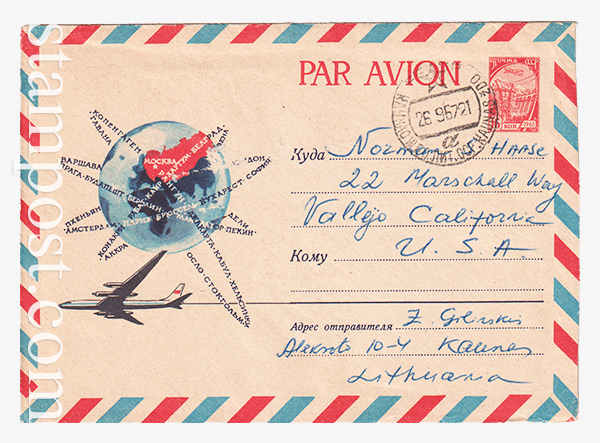 stampost.com
PAR AVION
ПОЧТА СССР
16 КОП 1961
26 9 67 21
а
КОПЕНГАГЕН
ГАВАНА
ВАРШАВА
ПРАГА·БУДАПЕШТ
ПХЕНЬЯН
АМСТЕРДАМ
КОНАКРИ
АККРА
МОСКВА
РАБАТ·КАИР
ХАРТУМ·БЕЛГРАД
ВЕНА
БЕРЛИН
ПАРИЖ·БРЮССЕЛЬ
БУХАРЕСТ·СОФИЯ
ДЕЛИ
ПЕКИН
ДЖАКАРТА·КАБУЛ·ХЕЛЬСИНКИ
ОСЛО·СТОКГОЛЬМ
Куда Norman Haase
22 Marschall Way
Vallejo California
Кому U. S. A.
Адрес отправителя Z.
Aleksoto 10-4 Kaunas
Lithuania